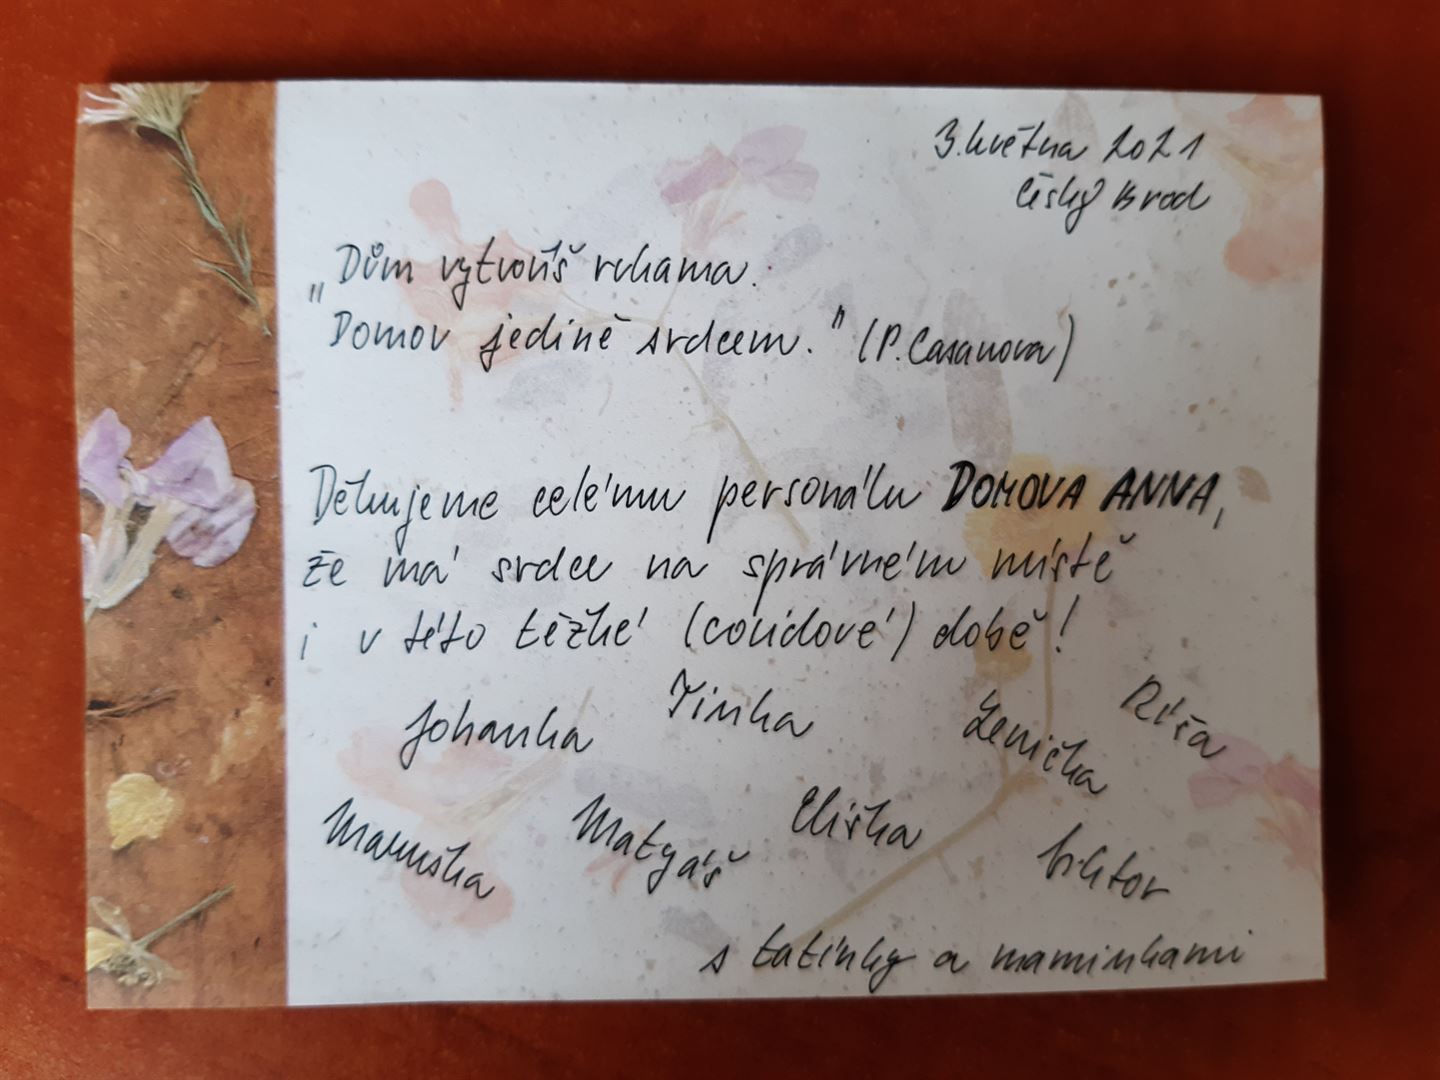 3. května 2021
Český Brod
„Dům vytvoříš rukama.
Domov jedině srdcem." (P. Casanova)
Děkujeme celému personálu DOMOVA ANNA,
že má srdce na správném místě
i v této těžké (covidové) době!
Johanka Jinka Lenička Ríša
Maruška Matyáš Eliška Viktor
s tatínky a maminkami